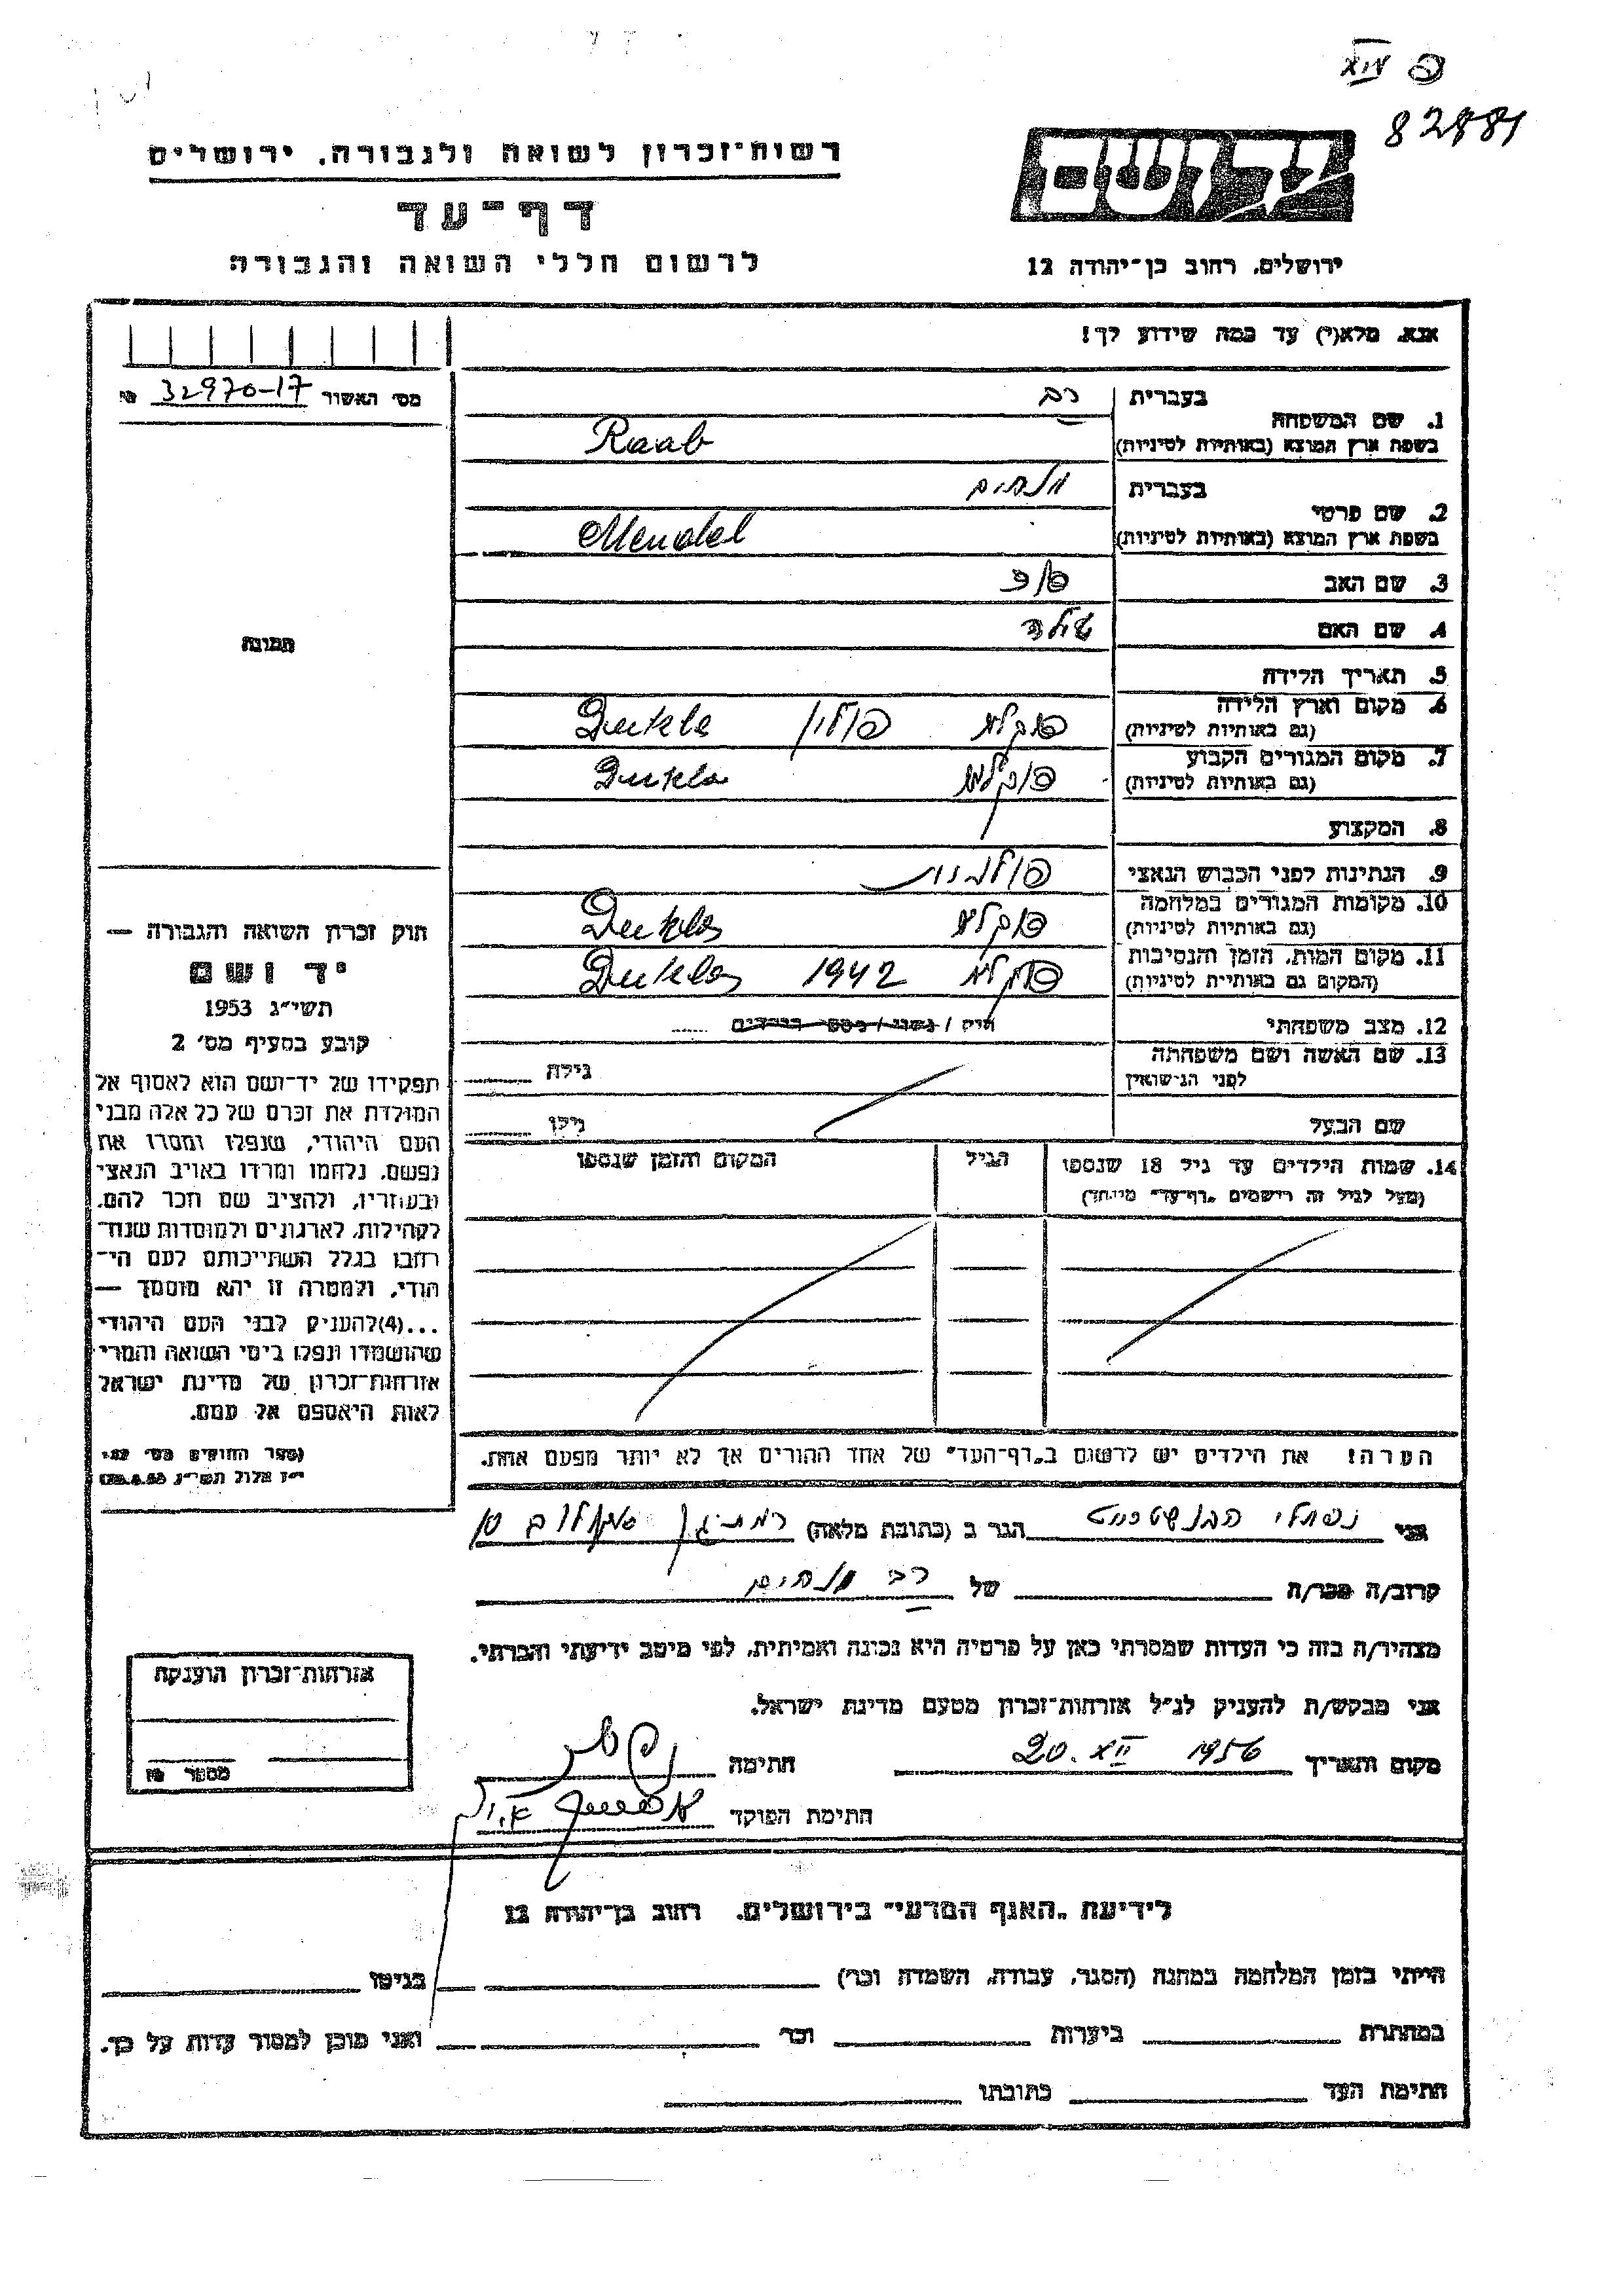 82881
רשות־זכרון לשואה ולגבורה, ירושלים
דף־עד
לרשום חללי השואה והגבורה
יד ושם
ירושלים, רחוב בן־יהודה 12
אנא, מלא(י) עד כמה שידוע לך!
מס׳ האשור 32970-17
בעברית רב
1. שם המשפחה
בשפת ארץ המוצא (באותיות לטיניות) Raab
בעברית מנחם
2. שם פרטי
בשפת ארץ המוצא (באותיות לטיניות) Mendel
3. שם האב
4. שם האם
5. תאריך הלידה
6. מקום וארץ הלידה
(גם באותיות לטיניות) דוקלא פולין Dukla
7. מקום המגורים הקבוע
(גם באותיות לטיניות) דוקלא Dukla
8. המקצוע
9. הנתינות לפני הכבוש הנאצי פולנית
10. מקומות המגורים במלחמה
(גם באותיות לטיניות) דוקלא Dukla
11. מקום המות, הזמן והנסיבות
(המקום גם באותיות לטיניות) דוקלא 1942 Dukla
12. מצב משפחתי רוק / נשוי / מספר הילדים
13. שם האשה ושם משפחתה
לפני הנישואין גילה
שם הבעל גילו
14. שמות הילדים עד גיל 18 שנספו הגיל המקום והזמן שנספו
(מעל לגיל זה רושמים „דף־עד״ מיוחד)
הערה! את הילדים יש לרשום ב„דף־העד״ של אחד ההורים אך לא יותר מפעם אחת.
תמונה
חוק זכרון השואה והגבורה —
יד ושם
תשי״ג 1953
קובע בסעיף מס׳ 2
תפקידו של יד־ושם הוא לאסוף אל
המולדת את זכרם של כל אלה מבני
העם היהודי, שנפלו ומסרו את
נפשם, נלחמו ומרדו באויב הנאצי
ובעוזריו, ולהציב שם וזכר להם,
לקהילות, לארגונים ולמוסדות שנח־
רבו בגלל השתייכותם לעם הי־
הודי, ולמטרה זו יהא מוסמך —
...(4)להעניק לבני העם היהודי
שהושמדו ונפלו בימי השואה והמרי
אזרחות־זכרון של מדינת ישראל
לאות היאספם אל עמם.
(ספר החוקים מס׳ 132
י״ז אלול תשי״ג 28.8.53)
אני נפתלי הגר ב (כתובת מלאה) רמת גן
קרוב/ה מכר/ה של רב מנחם
מצהיר/ה בזה כי העדות שמסרתי כאן על פרטיה היא נכונה ואמיתית, לפי מיטב ידיעתי והכרתי.
אני מבקש/ת להעניק לנ״ל אזרחות־זכרון מטעם מדינת ישראל.
מקום ותאריך 20. XII 1956 חתימה
חתימת הפוקד
אזרחות־זכרון הוענקה
מספר
לידיעת „האגף המדעי״ בירושלים, רחוב בן־יהודה 12
הייתי בזמן המלחמה במחנה (הסגר, עבודה, השמדה וכו׳) בגיטו
במחתרת ביערות וכו׳ ואני מוכן למסור עדות על כך.
חתימת העד כתובתו